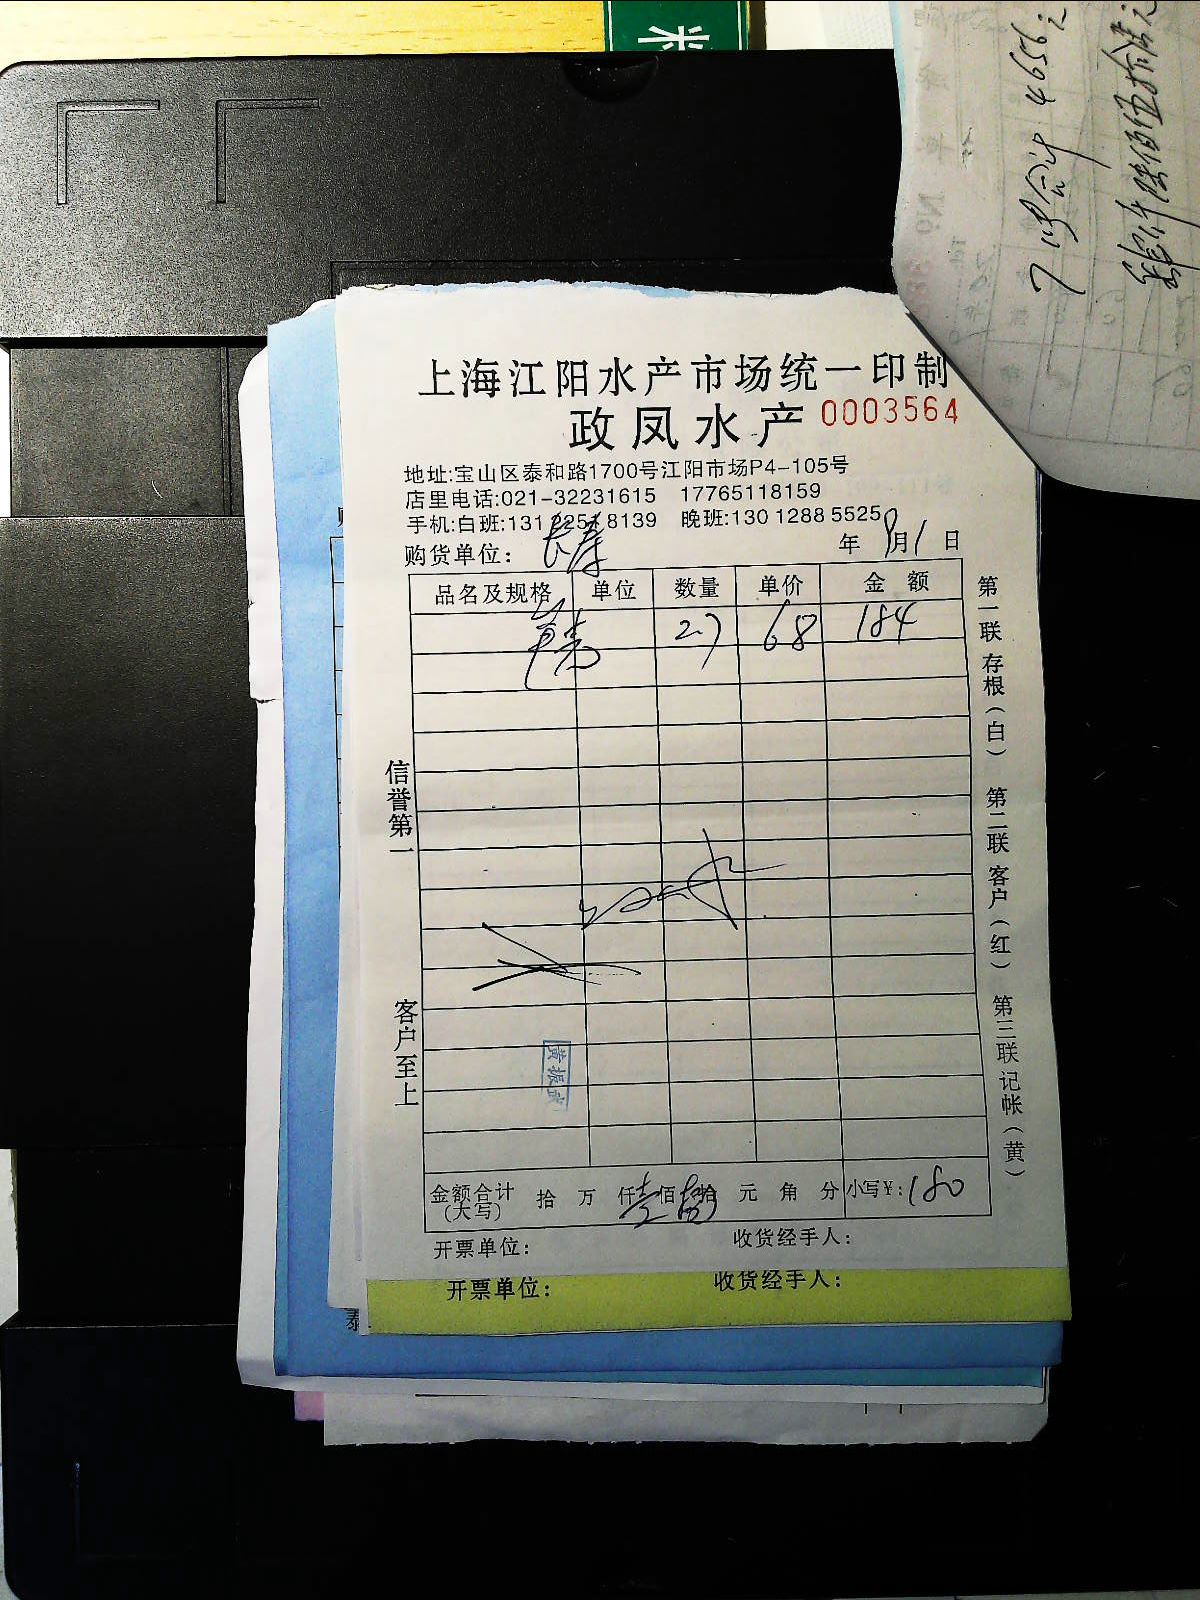 米
7号合计 4656元
肆仟陆佰伍拾
上海江阳水产市场统一印制
政凤水产 0003564
地址:宝山区泰和路1700号江阳市场P4-105号
店里电话:021-32231615 17765118159
手机:白班:131 2251 8139 晚班:130 1288 5525
购货单位: 长寿 年 9月1日
品名及规格 单位 数量 单价 金额
2.7 68 184
信誉第一
客户至上
第一联 存根(白) 第二联 客户(红) 第三联 记帐(黄)
黄振武
金额合计(大写) 拾 万 仟壹佰捌拾 元 角 分 小写¥: 180
开票单位: 收货经手人:
开票单位: 收货经手人:
泰